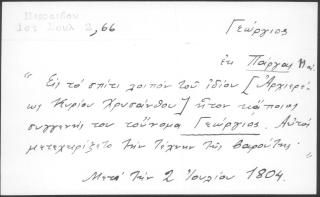 Περραιβού
Ιστ Σουλ 2, 66
Γεώργιος
ἐκ Πάργας
" Εἰς τό σπίτι λοιπόν τοῦ ἰδίου [Ἀρχιερέ-
ως Κυρίου Χρυσάνθου] ἦτον κάποιος
συγγενής του τοὔνομα Γεώργιος. Αὐτός
μετεχειρίζετο τήν τέχνην τῆς βαρούτης.
Μετά τήν 2 Ἰουλίου 1804.